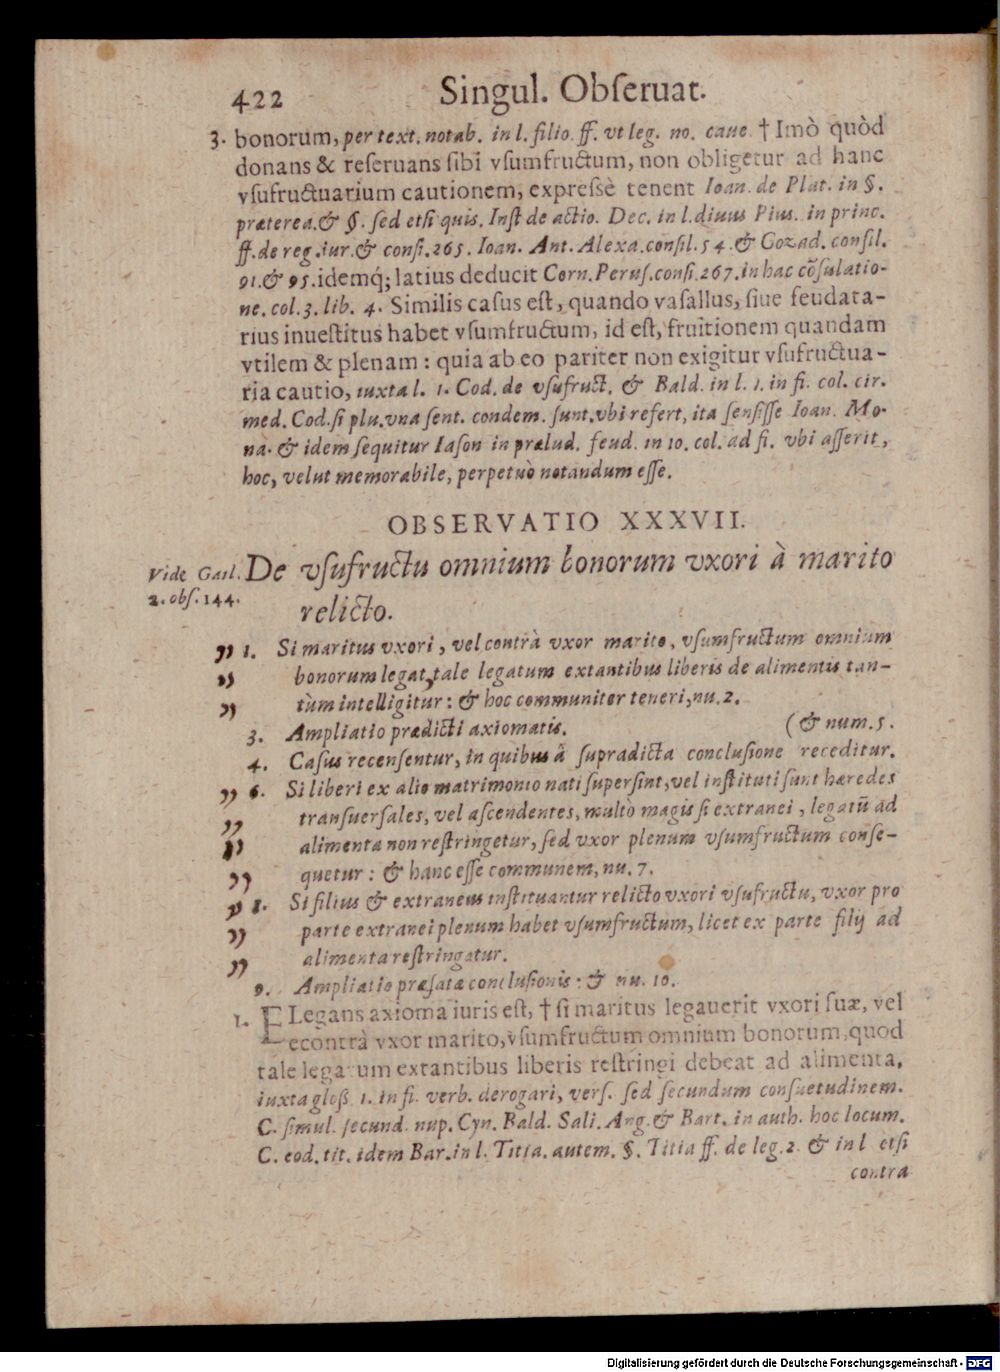 422 Singul. Obſeruat.
3. bonorum, per text. notab. in l. filio. ff. vt leg. no. caue † Imò quòd
donans & reſeruans ſibi vſumfructum, non obligetur ad hanc
vſufructuarium cautionem, expreſsè tenent Ioan. de Plat. in §.
præterea. & §. ſed etſi quis. Inſt de actio. Dec. in l. diuus Pius. in princ.
ff. de reg. iur. & conſi. 265. Ioan. Ant. Alexa. conſil. 54. & Gozad. conſil.
91. & 95. idemq́; latius deducit Corn. Peruſ. conſi. 267. in hac cõſulatio-
ne. col. 3. lib. 4. Similis caſus eſt, quando vaſallus, ſiue feudata-
rius inueſtitus habet vſumfructum, id eſt, fruitionem quandam
vtilem & plenam: quia ab eo pariter non exigitur vſufructua-
ria cautio, iuxta l. 1. Cod. de vſufruct. & Bald. in l. 1. in fi. col. cir.
med. Cod. ſi plu. vna ſent. condem. ſunt. vbi refert, ita ſenſiſſe Ioan. Mo-
na. & idem ſequitur Iaſon in prælud. feud. in 10. col. ad fi. vbi aſſerit,
hoc, velut memorabile, perpetuò notandum eſſe.
OBSERVATIO XXXVII.
Vide Gail.
2. obſ. 144.
De vſufructu omnium bonorum vxori à marito
relicto.
„ 1. Si maritus vxori, vel contrà vxor marito, vſumfructum omnium
„ bonorum legat, tale legatum extantibus liberis de alimentis tan-
„ tùm intelligitur: & hoc communiter teneri, nu. 2.
3. Ampliatio prædicti axiomatis. (& num. 5.
4. Caſus recenſentur, in quibus à ſupradicta concluſione receditur.
„ 6. Si liberi ex alio matrimonio nati ſuperſint, vel inſtituti ſunt hæredes
„ tranſuerſales, vel aſcendentes, multò magis ſi extranei, legatũ ad
„ alimenta non reſtringetur, ſed vxor plenum vſumfructum conſe-
„ quetur: & hanc eſſe communem, nu. 7.
„ 8. Si filius & extraneus inſtituantur relicto vxori vſufructu, vxor pro
„ parte extranei plenum habet vſumfructum, licet ex parte filij ad
„ alimenta reſtringatur.
9. Ampliatio præfatæ concluſionis: & nu. 10.
1. ELegans axioma iuris eſt, † ſi maritus legauerit vxori ſuæ, vel
econtrà vxor marito, vſumfructum omnium bonorum, quod
tale legatum extantibus liberis reſtringi debeat ad alimenta,
iuxta gloß. 1. in fi. verb. derogari, verſ. ſed ſecundum conſuetudinem.
C. ſimul. ſecund. nup. Cyn. Bald. Sali. Ang. & Bart. in auth. hoc locum.
C. eod. tit. idem Bar. in l. Titia. autem. §. Titia ff. de leg. 2. & in l etſi
contra
Digitalisierung gefördert durch die Deutsche Forschungsgemeinschaft - DFG